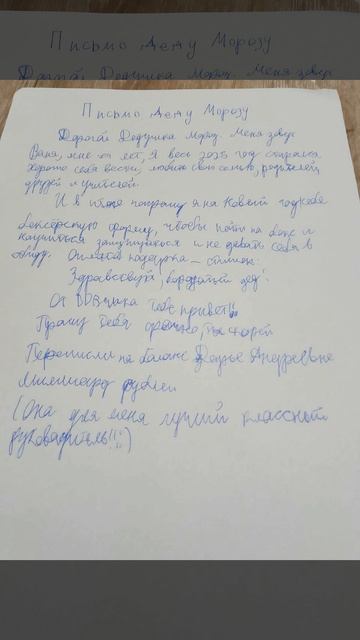 Письмо Деду Морозу
Дорогой Дедушка Мороз. Меня зовут
Письмо Деду Морозу
Дорогой Дедушка Мороз. Меня зовут
Ваня, мне лет, Я весь 2025 год старался
хорошо себя вести, любить свою семью, родителей,
друзей и учителей.
И в итоге попрошу я на Новый год себе
боксёрскую форму, чтобы пойти на бокс и
научиться защищаться и не давать себя в
обиду. Оплата подарка – стишок:
Здравствуй, бородатый дед!
От Ванька тебе привет!!
Прошу тебя срочно,
Перечисли на баланс Дарье Андреевне
Миллиард рублей
(Она для меня лучший классный
руководитель!!!)